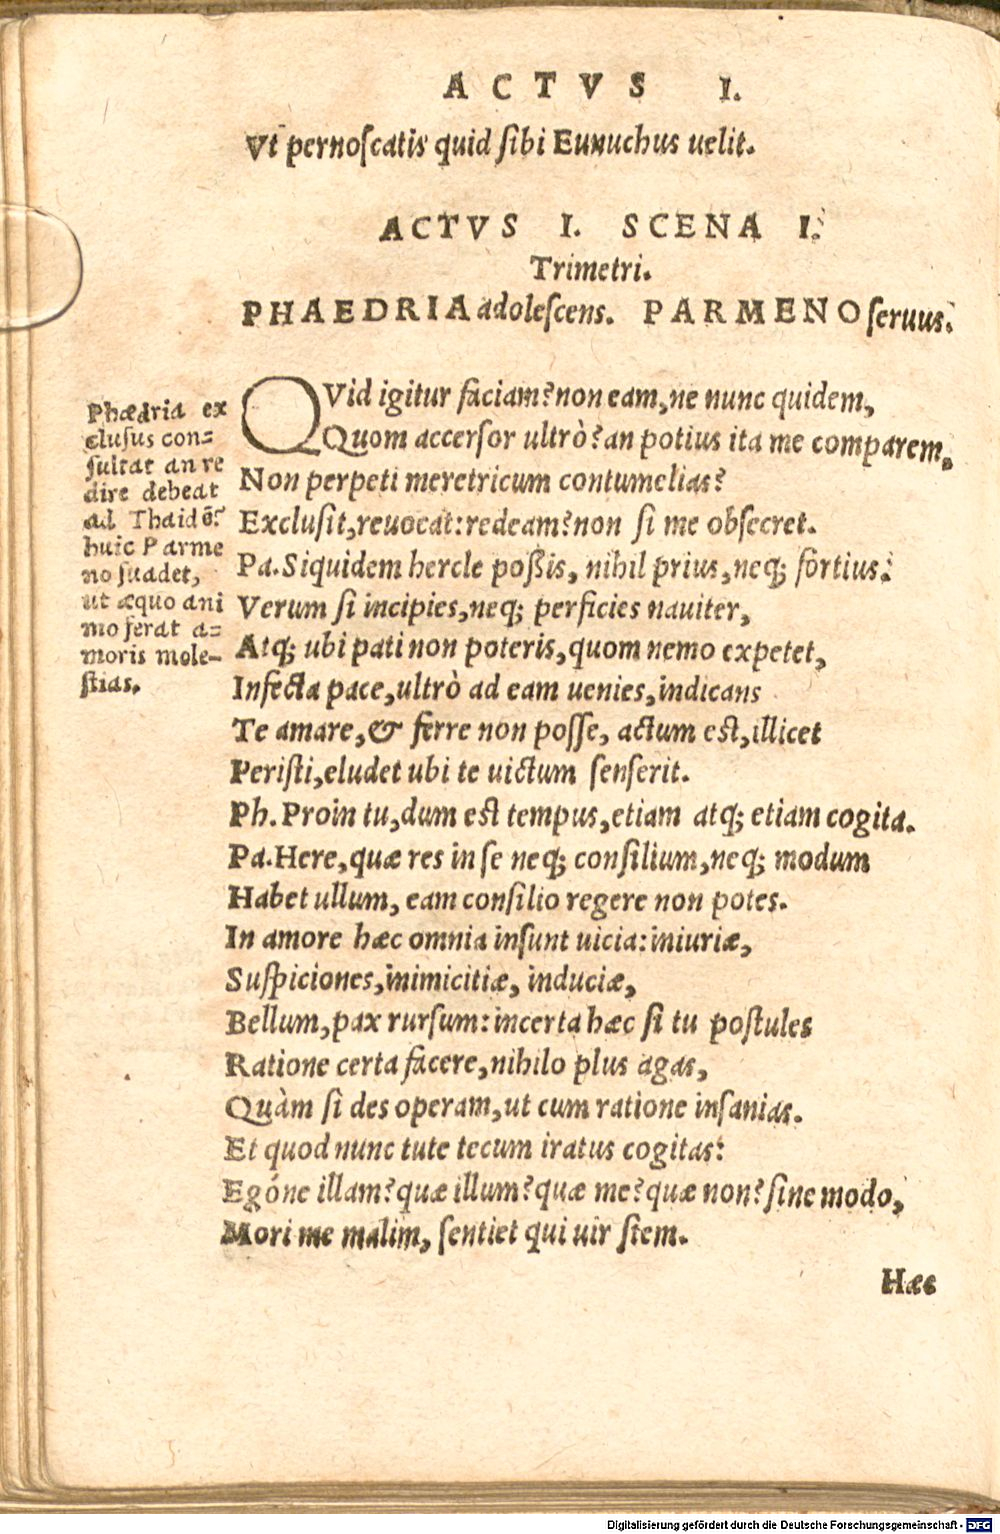 ACTVS I.
Vt pernoſcatis quid ſibi Eunuchus uelit.
ACTVS I. SCENA I.
Trimetri.
PHAEDRIA adoleſcens. PARMENO ſeruus.
Phædria ex
cluſus con=
ſultat an re
dire debeat
ad Thaidē:
huic Parme
no ſuadet,
ut æquo ani
mo ferat a=
moris mole-
ſtias.
QVid igitur faciam? non eam, ne nunc quidem,
Quom accerſor ultrò? an potius ita me comparem,
Non perpeti meretricum contumelias?
Excluſit, reuocat: redeam? non ſi me obſecret.
Pa. Siquidem hercle poßis, nihil prius, neq; fortius.
Verum ſi incipies, neq; perficies nauiter,
Atq; ubi pati non poteris, quom nemo expetet,
Infecta pace, ultrò ad eam uenies, indicans
Te amare, & ferre non poſſe, actum eſt, illicet
Periſti, eludet ubi te uictum ſenſerit.
Ph. Proin tu, dum eſt tempus, etiam atq; etiam cogita.
Pa. Here, quæ res in ſe neq; conſilium, neq; modum
Habet ullum, eam conſilio regere non potes.
In amore hæc omnia inſunt uicia: iniuriæ,
Suſpiciones, inimicitiæ, induciæ,
Bellum, pax rurſum: incerta hæc ſi tu poſtules
Ratione certa facere, nihilo plus agas,
Quàm ſi des operam, ut cum ratione inſanias.
Et quod nunc tute tecum iratus cogitas:
Egóne illam? quæ illum? quæ me? quæ non? ſine modo,
Mori me malim, ſentiet qui uir ſiem.
Hæc
Digitalisierung gefördert durch die Deutsche Forschungsgemeinschaft - DFG